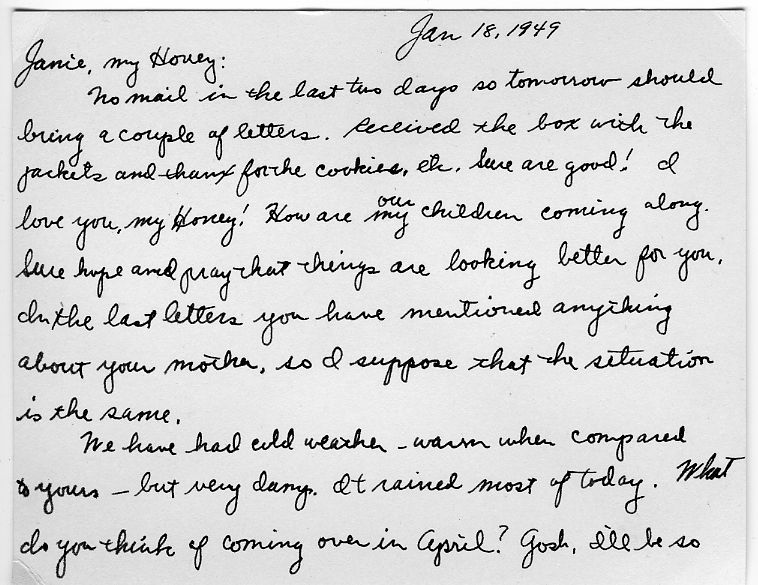 Jan 18, 1949
Janie, my Honey:
No mail in the last two days so tomorrow should
bring a couple of letters. Received the box with the
jackets and thanx for the cookies, etc. Sure are good! I
love you, my Honey! How are my our children coming along.
Sure hope and pray that things are looking better for you.
In the last letters you have mentioned anything
about your mother, so I suppose that the situation
is the same.
We have had cold weather - warm when compared
to yours - but very damp. It rained most of today. What
do you think of coming over in April? Gosh, I'll be so